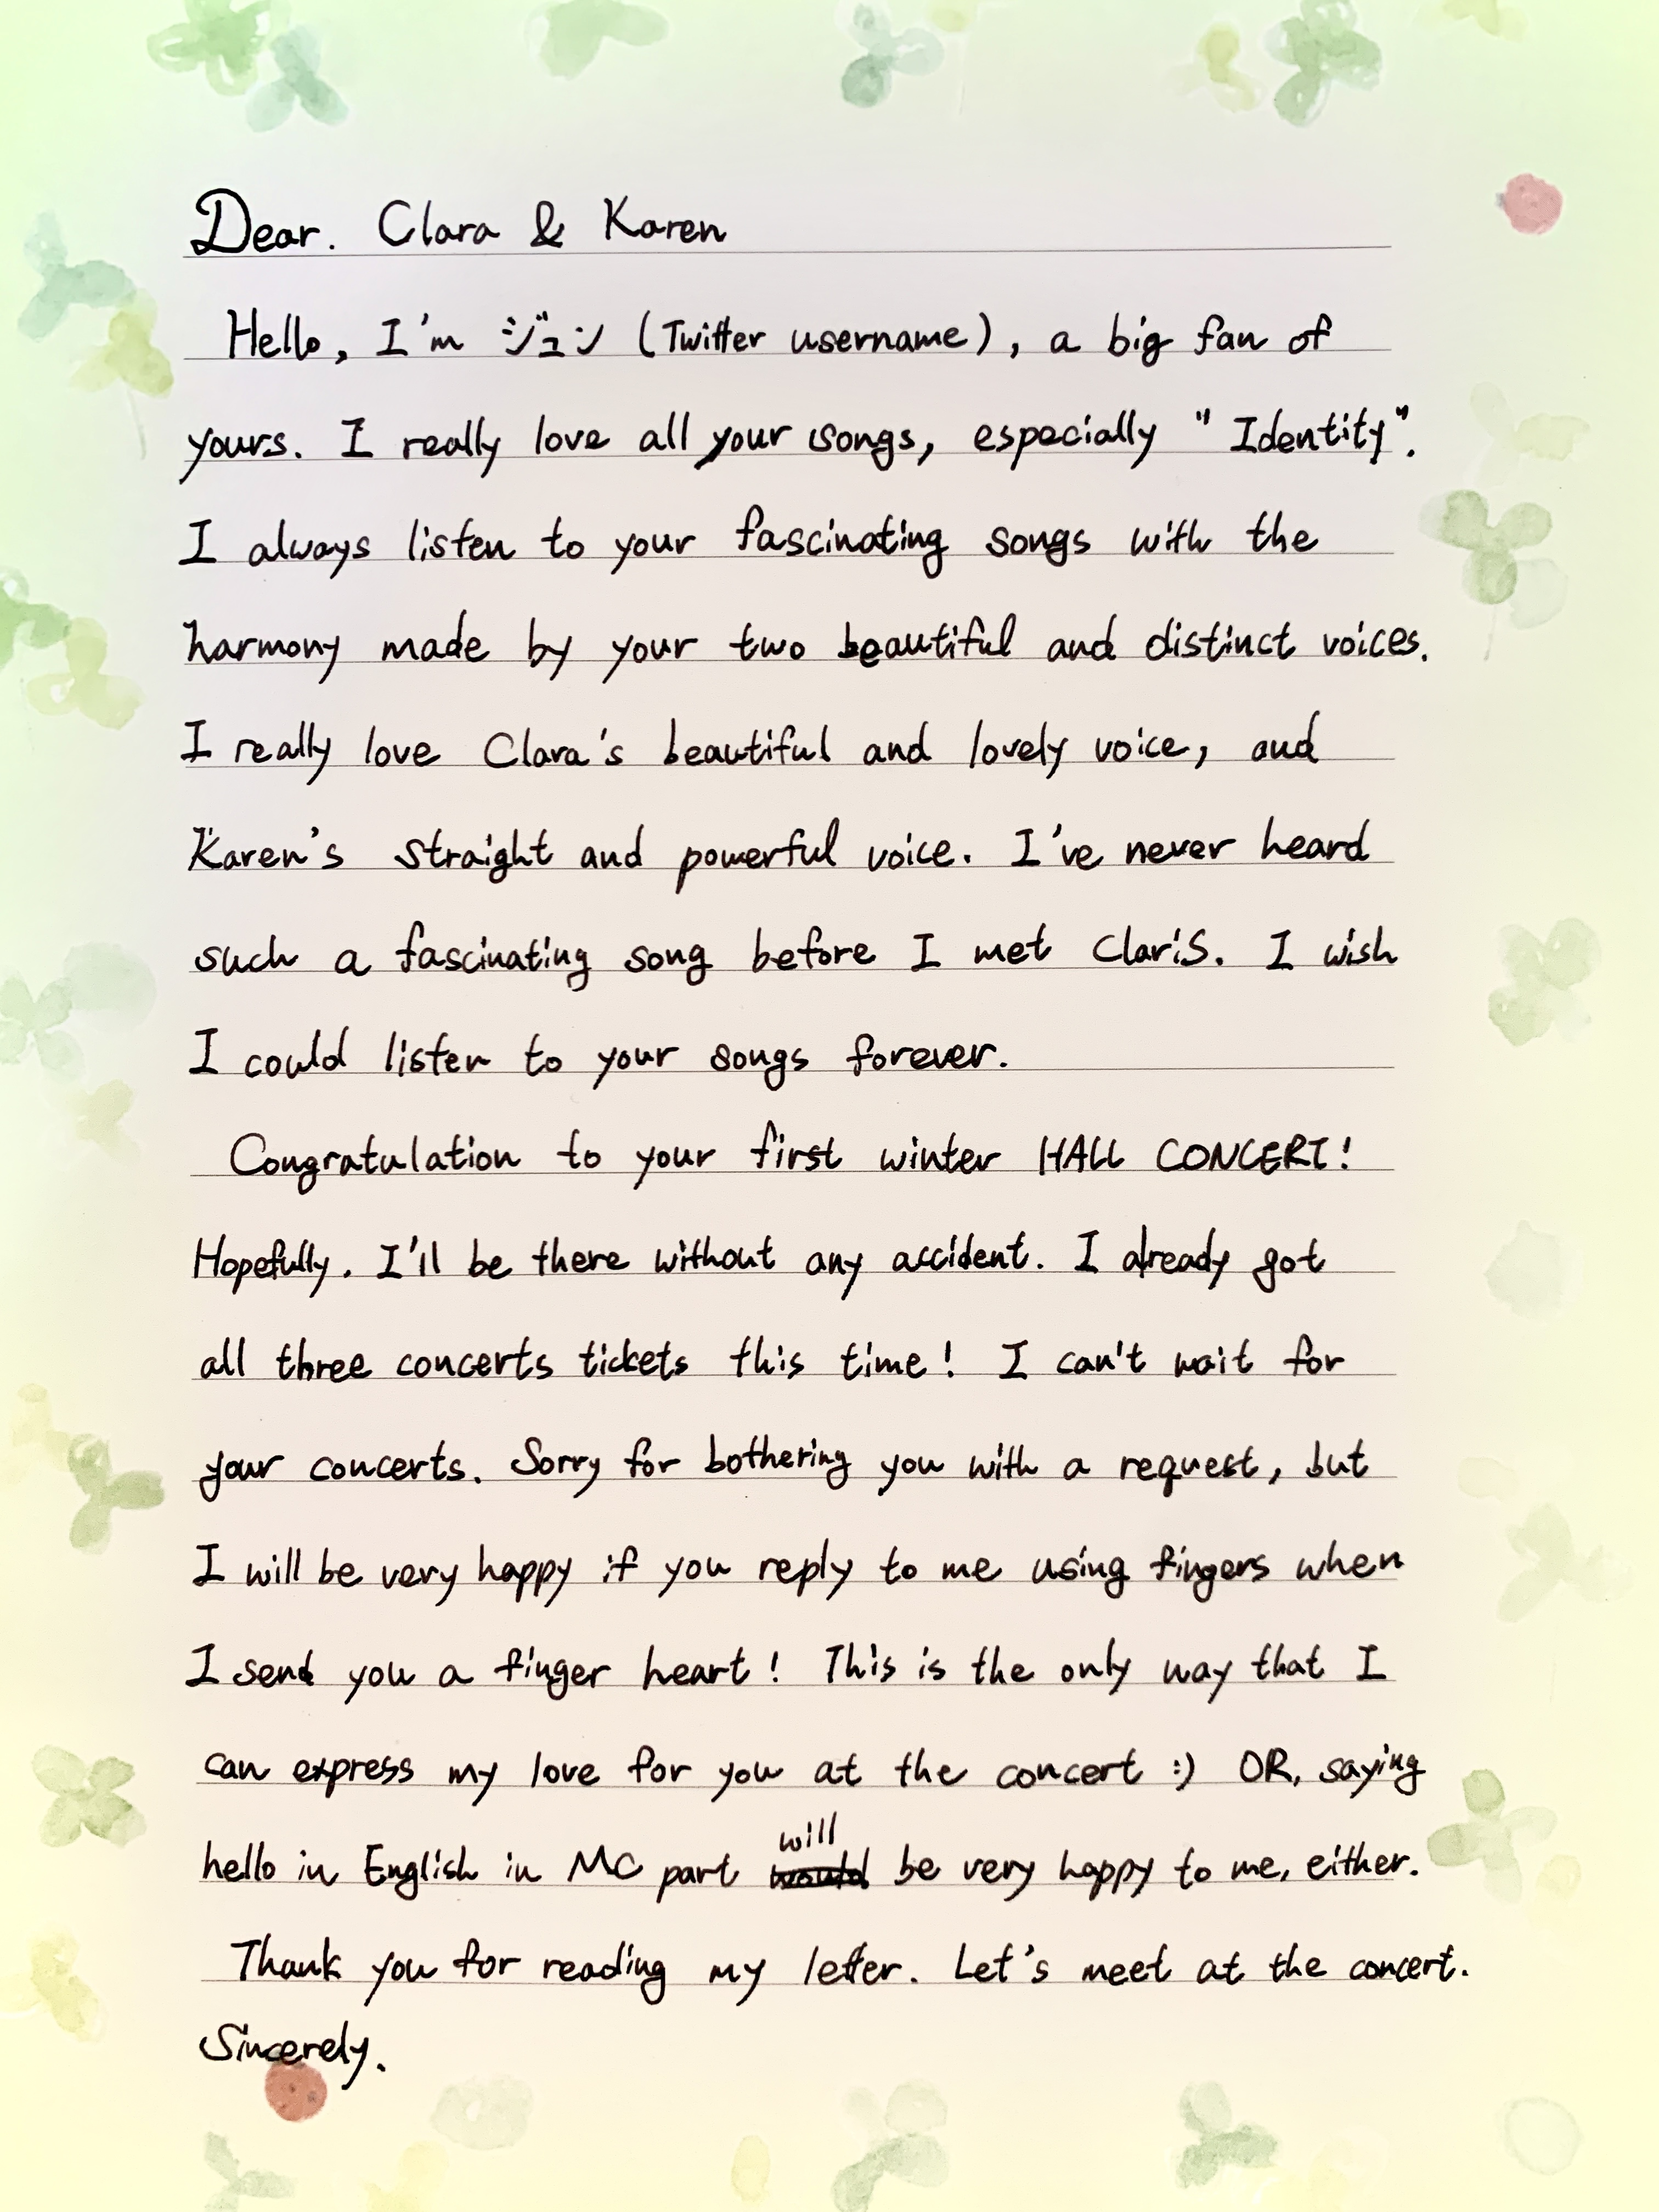 Dear. Clara & Karen
Hello, I'm ジュン (Twitter username), a big fan of
yours. I really love all your songs, especially "Identity".
I always listen to your fascinating songs with the
harmony made by your two beautiful and distinct voices.
I really love Clara's beautiful and lovely voice, and
Karen's straight and powerful voice. I've never heard
such a fascinating song before I met ClariS. I wish
I could listen to your songs forever.
Congratulation to your first winter HALL CONCERT!
Hopefully. I'll be there without any accident. I already got
all three concerts tickets this time! I can't wait for
your concerts. Sorry for bothering you with a request, but
I will be very happy if you reply to me using fingers when
I send you a finger heart! This is the only way that I
can express my love for you at the concert :) OR, saying
hello in English in MC part will be very happy to me, either.
Thank you for reading my letter. Let's meet at the concert.
Sincerely.